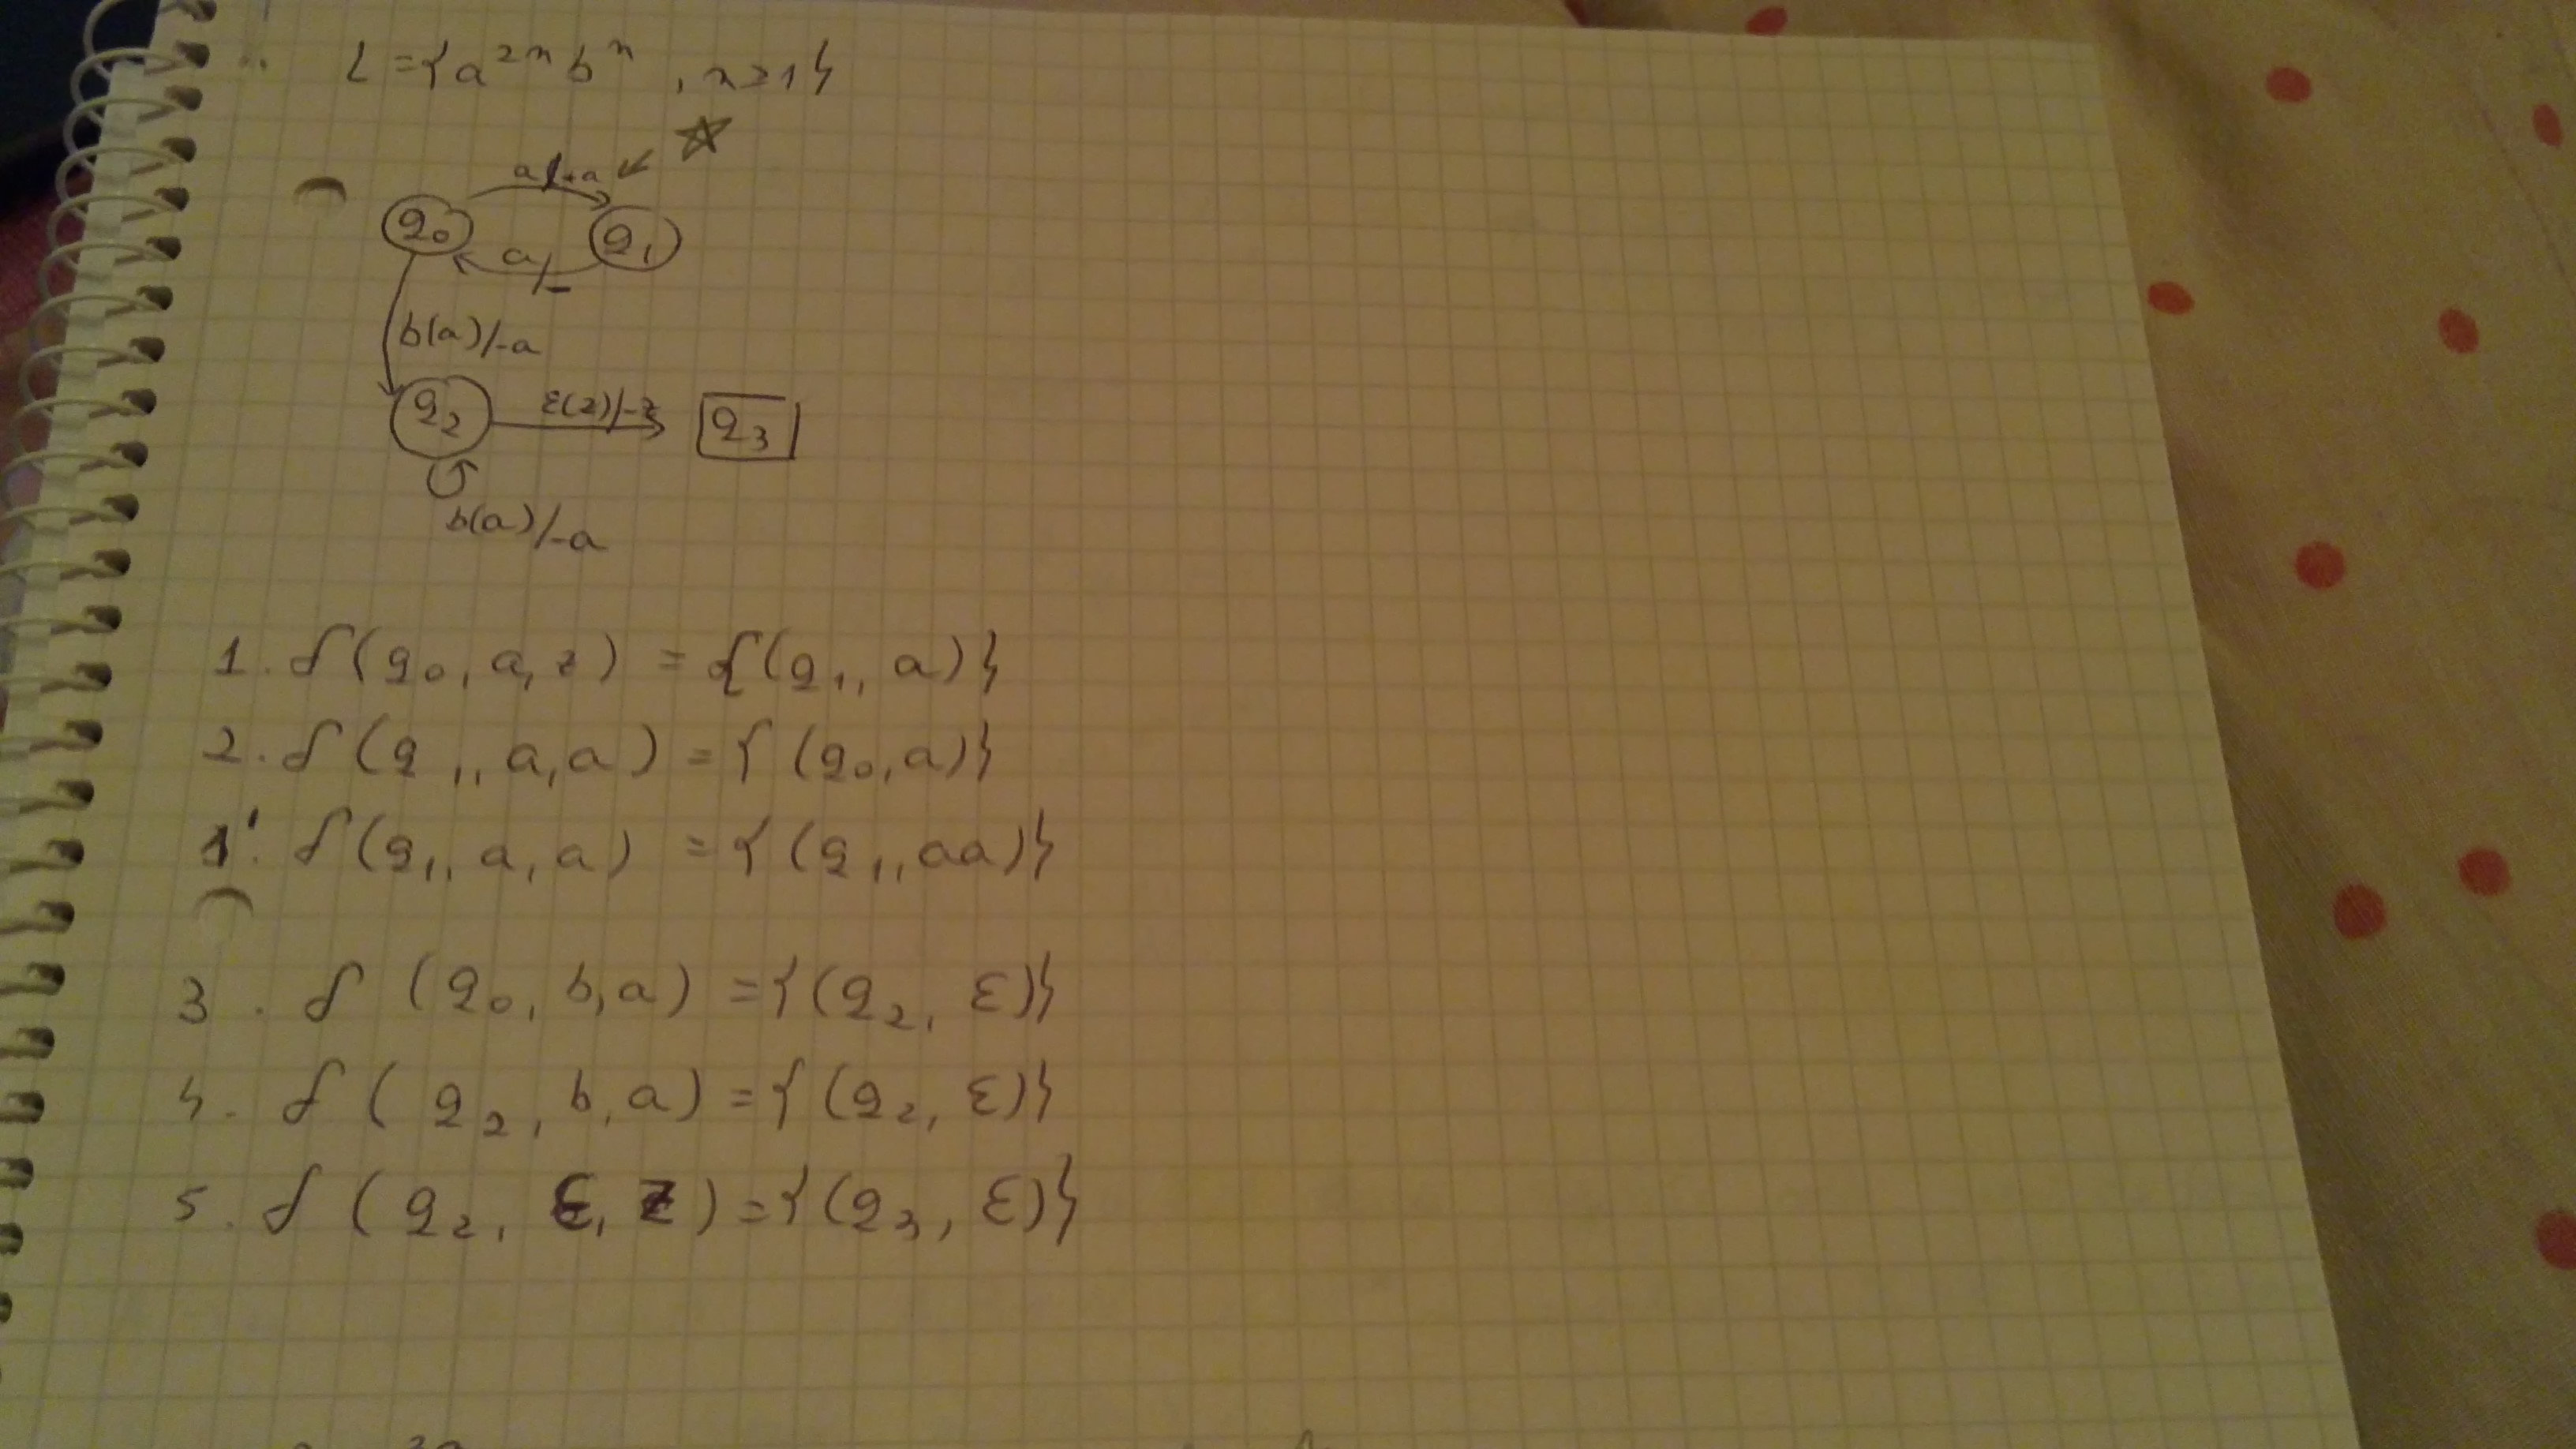 L = {a²ⁿ bⁿ , n ≥ 1}
a/+a
q₀ q₁
a/-
b(a)/-a
q₂ ε(z)/-z q₃
b(a)/-a
1. δ(q₀, a, z) = {(q₁, a)}
2. δ(q₁, a, a) = {(q₀, a)}
1'. δ(q₁, a, a) = {(q₁, aa)}
3. δ(q₀, b, a) = {(q₂, ε)}
4. δ(q₂, b, a) = {(q₂, ε)}
5. δ(q₂, ε, z) = {(q₃, ε)}